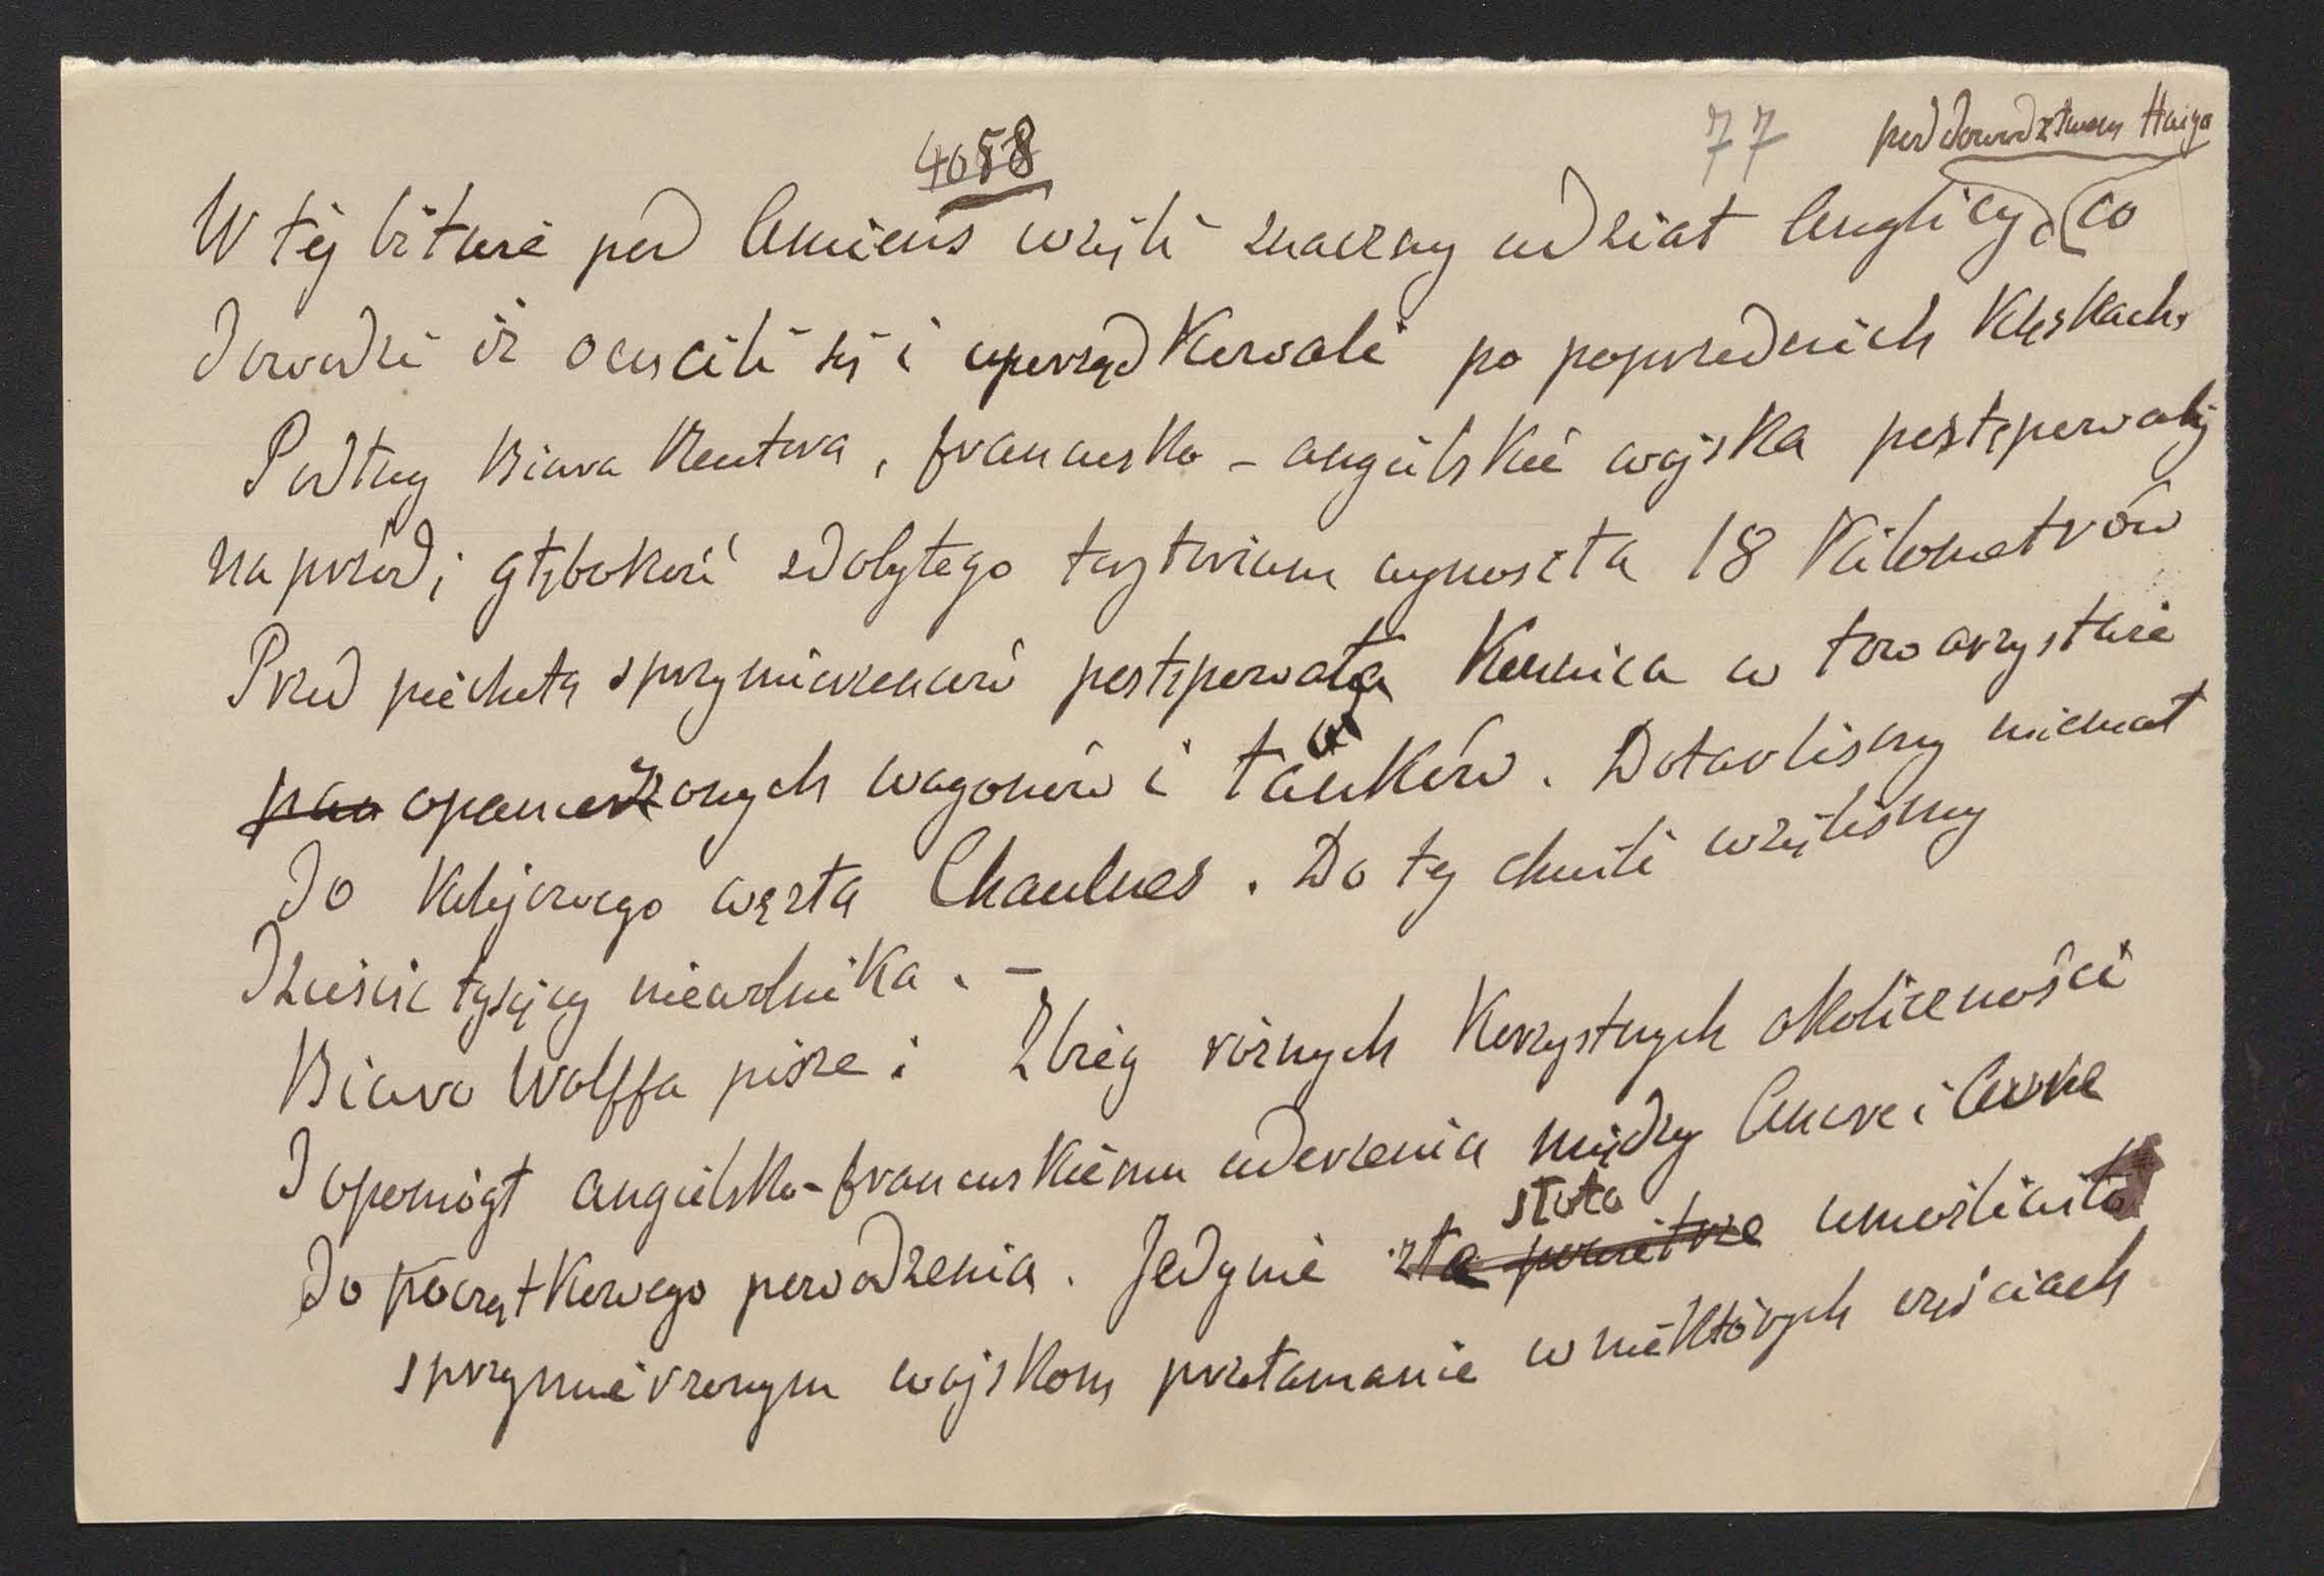 4058
77 pod dowództwem Haiga
W tej bitwie pod Amiens wzięli znaczny udział Anglicy, co
dowodzi iż ocucili się i uporządkowali po poprzednich klęskach.
Podług Biura Reutera, francusko-angielskie wojska postępowały
naprzód; głębokość zdobytego terytorium wynosiła 18 kilometrów
Przed piechotą sprzymierzeńców postępowała konnica w towarzystwie
pan opancerzonych wagonów i tanków. Dotarliśmy niemal
do kolejowego węzła Chaulnes. Do tej chwili wzięliśmy
dziesięć tysięcy niewolnika. -
Biuro Wolffa pisze: Zbieg różnych korzystnych okoliczności
dopomógł angielsko-francuskiemu uderzeniu między Ancre i Avre
do początkowego powodzenia. Jedynie złe powietrze słota umożliwiła
sprzymierzonym wojskom przełamanie w niektórych częściach